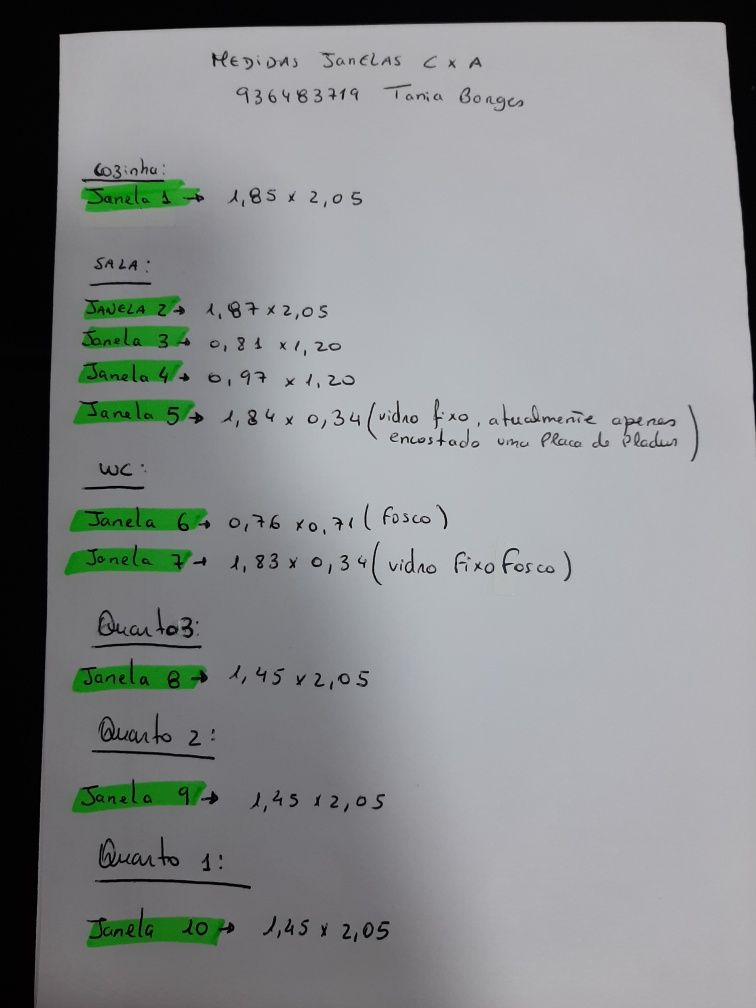 MEDIDAS JANELAS C x A
936483719 Tania Borges
Cozinha:
Janela 1 → 1,85 x 2,05
SALA:
JANELA 2 → 1,87 x 2,05
Janela 3 → 0,81 x 1,20
Janela 4 → 0,97 x 1,20
Janela 5 → 1,84 x 0,34 (vidro fixo, atualmente apenas
encostado uma placa de Pladur)
WC:
Janela 6 → 0,76 x 0,71 (fosco)
Janela 7 → 1,83 x 0,34 (vidro fixo fosco)
Quarto 3:
Janela 8 → 1,45 x 2,05
Quarto 2:
Janela 9 → 1,45 x 2,05
Quarto 1:
Janela 10 → 1,45 x 2,05